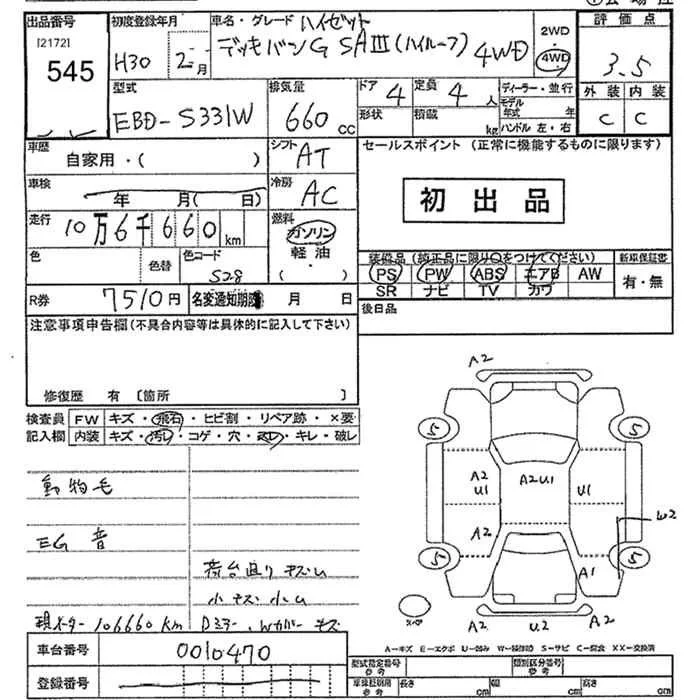 出品番号
[21721]
545
初度登録年月
H30 2月
車名・グレード ハイゼット
デッキバンG SAⅢ(ハイルーフ) 4WD
2WD
4WD
評価点
3.5
外装 内装
C C
型式
EBD-S331W
排気量
660 cc
ドア 4
形状
定員 4 人
積載 kg
ディーラー・並行
モデル年式 年
ハンドル 左・右
車歴
自家用・( )
シフト AT
セールスポイント (正常に機能するものに限ります)
初出品
車検
年 月( 日)
冷房 AC
走行
10万6千660km
燃料
ガソリン
軽油
・
( )
色
色替
色コード
S28
装備品(純正品に限り○をつけてください)
PS PW ABS エアB AW
SR ナビ TV カワ
新車保証書
有・無
R券 7510円
名変通知期限 月 日
後日品
注意事項申告欄(不具合内容等は具体的に記入して下さい)
修復歴 有 〔箇所 〕
検査員記入欄
FW キズ・飛石・ヒビ割・リペア跡・×要
内装 キズ・汚レ・コゲ・穴・スレ・キレ・破レ
動物毛
EG 音
荷台廻り キズU
小キズ 小U
現メーター 106660km Dミラー、Wカバー キズ
A2
5 5
A2 U1
A2U1
U1
A2
W2
5 5
A1
スペア
A2 U2 A2
A−キズ E−エクボ U−凹み W−補修跡 S−サビ C−腐食 XX−交換済
車台番号 0010470
登録番号
型式指定番号 参考
類別区分番号 参考
車検証別用 参考
長さ cm
幅 cm
高さ cm